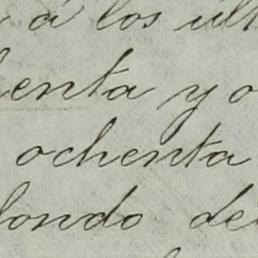 á los últ
enta y o
ochenta
fondo de